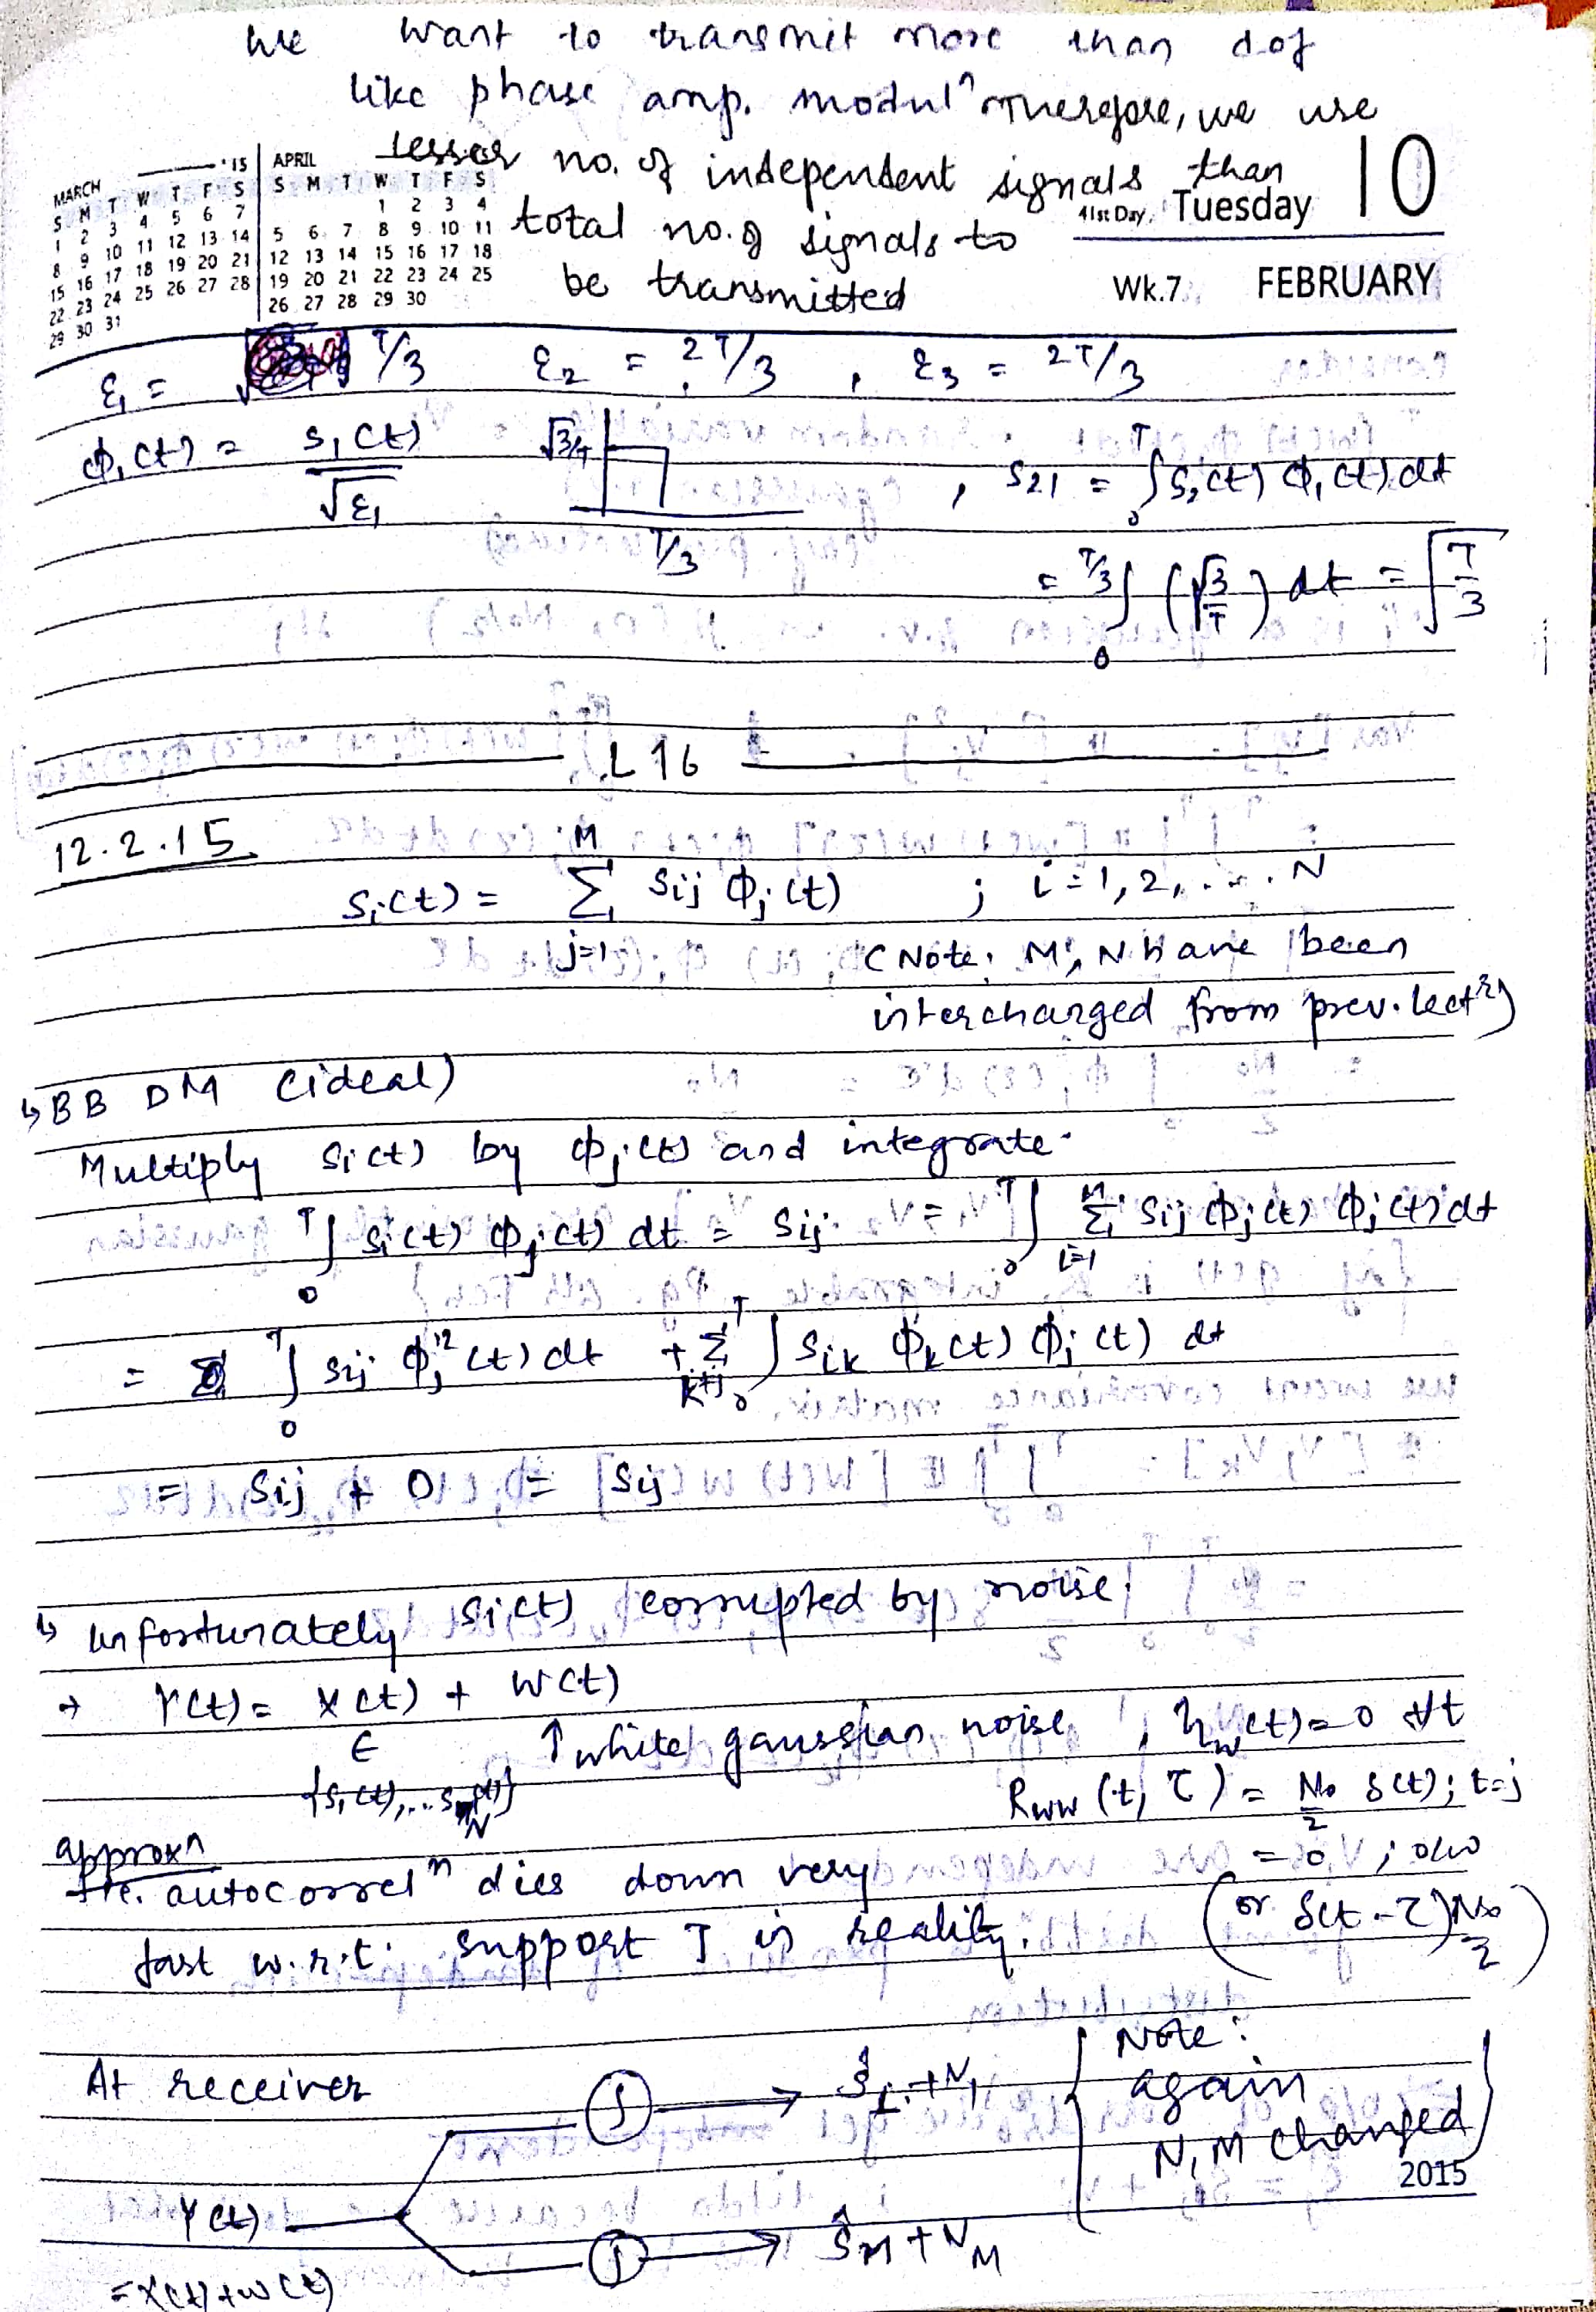 we want to transmit more than dof
like phase amp. modulⁿ Therefore, we use
lesser no. of independent signals than
total no. of signals to
be transmitted
MARCH '15
S M T W T F S
1 2 3 4 5 6 7
8 9 10 11 12 13 14
15 16 17 18 19 20 21
22 23 24 25 26 27 28
29 30 31
APRIL
S M T W T F S
1 2 3 4
5 6 7 8 9 10 11
12 13 14 15 16 17 18
19 20 21 22 23 24 25
26 27 28 29 30
41st Day, Tuesday 10
Wk.7 FEBRUARY
ε₁ = T/3 ε₂ = 2T/3 , ε₃ = 2T/3
ϕ₁(t) = s₁(t)/√ε₁ √3/T T/3 , s₂₁ = ∫₀ᵀ s₂(t) ϕ₁(t) dt
= ∫₀^{T/3} (√3/T) dt = √T/3
L 16
12.2.15
sᵢ(t) = Σ_{j=1}^{M} sᵢⱼ ϕⱼ(t) ; i = 1, 2, .... N
(Note: M, N have been
interchanged from prev. lectʳ)
↳ BB DM (ideal)
Multiply sᵢ(t) by ϕⱼ(t) and integrate.
∫₀ᵀ sᵢ(t) ϕⱼ(t) dt = sᵢⱼ = ∫₀ᵀ Σ_{i=1}^{M} sᵢⱼ ϕⱼ(t) ϕⱼ(t) dt
= ∫₀ᵀ sᵢⱼ ϕⱼ²(t) dt + Σ_{k≠j} ∫₀ᵀ sᵢₖ ϕₖ(t) ϕⱼ(t) dt
= sᵢⱼ + 0 = sᵢⱼ
↳ Unfortunately sᵢ(t) corrupted by noise.
→ Y(t) = X(t) + W(t)
∈ ↑ white gaussian noise , η_w(t) = 0 ∀t
{s₁(t),... s_N(t)} R_WW (t, τ) = N₀/2 δ(t); t=j
approxⁿ = 0 ; o/w
i.e. autocorrelⁿ dies down very (or δ(t-τ) N₀/2)
fast w.r.t. support T in reality.
At receiver ∫ → ŝ₁ + N₁
Note:
again
N, M changed
Y(t) ∫ → ŝ_M + N_M
= X(t) + W(t)
2015